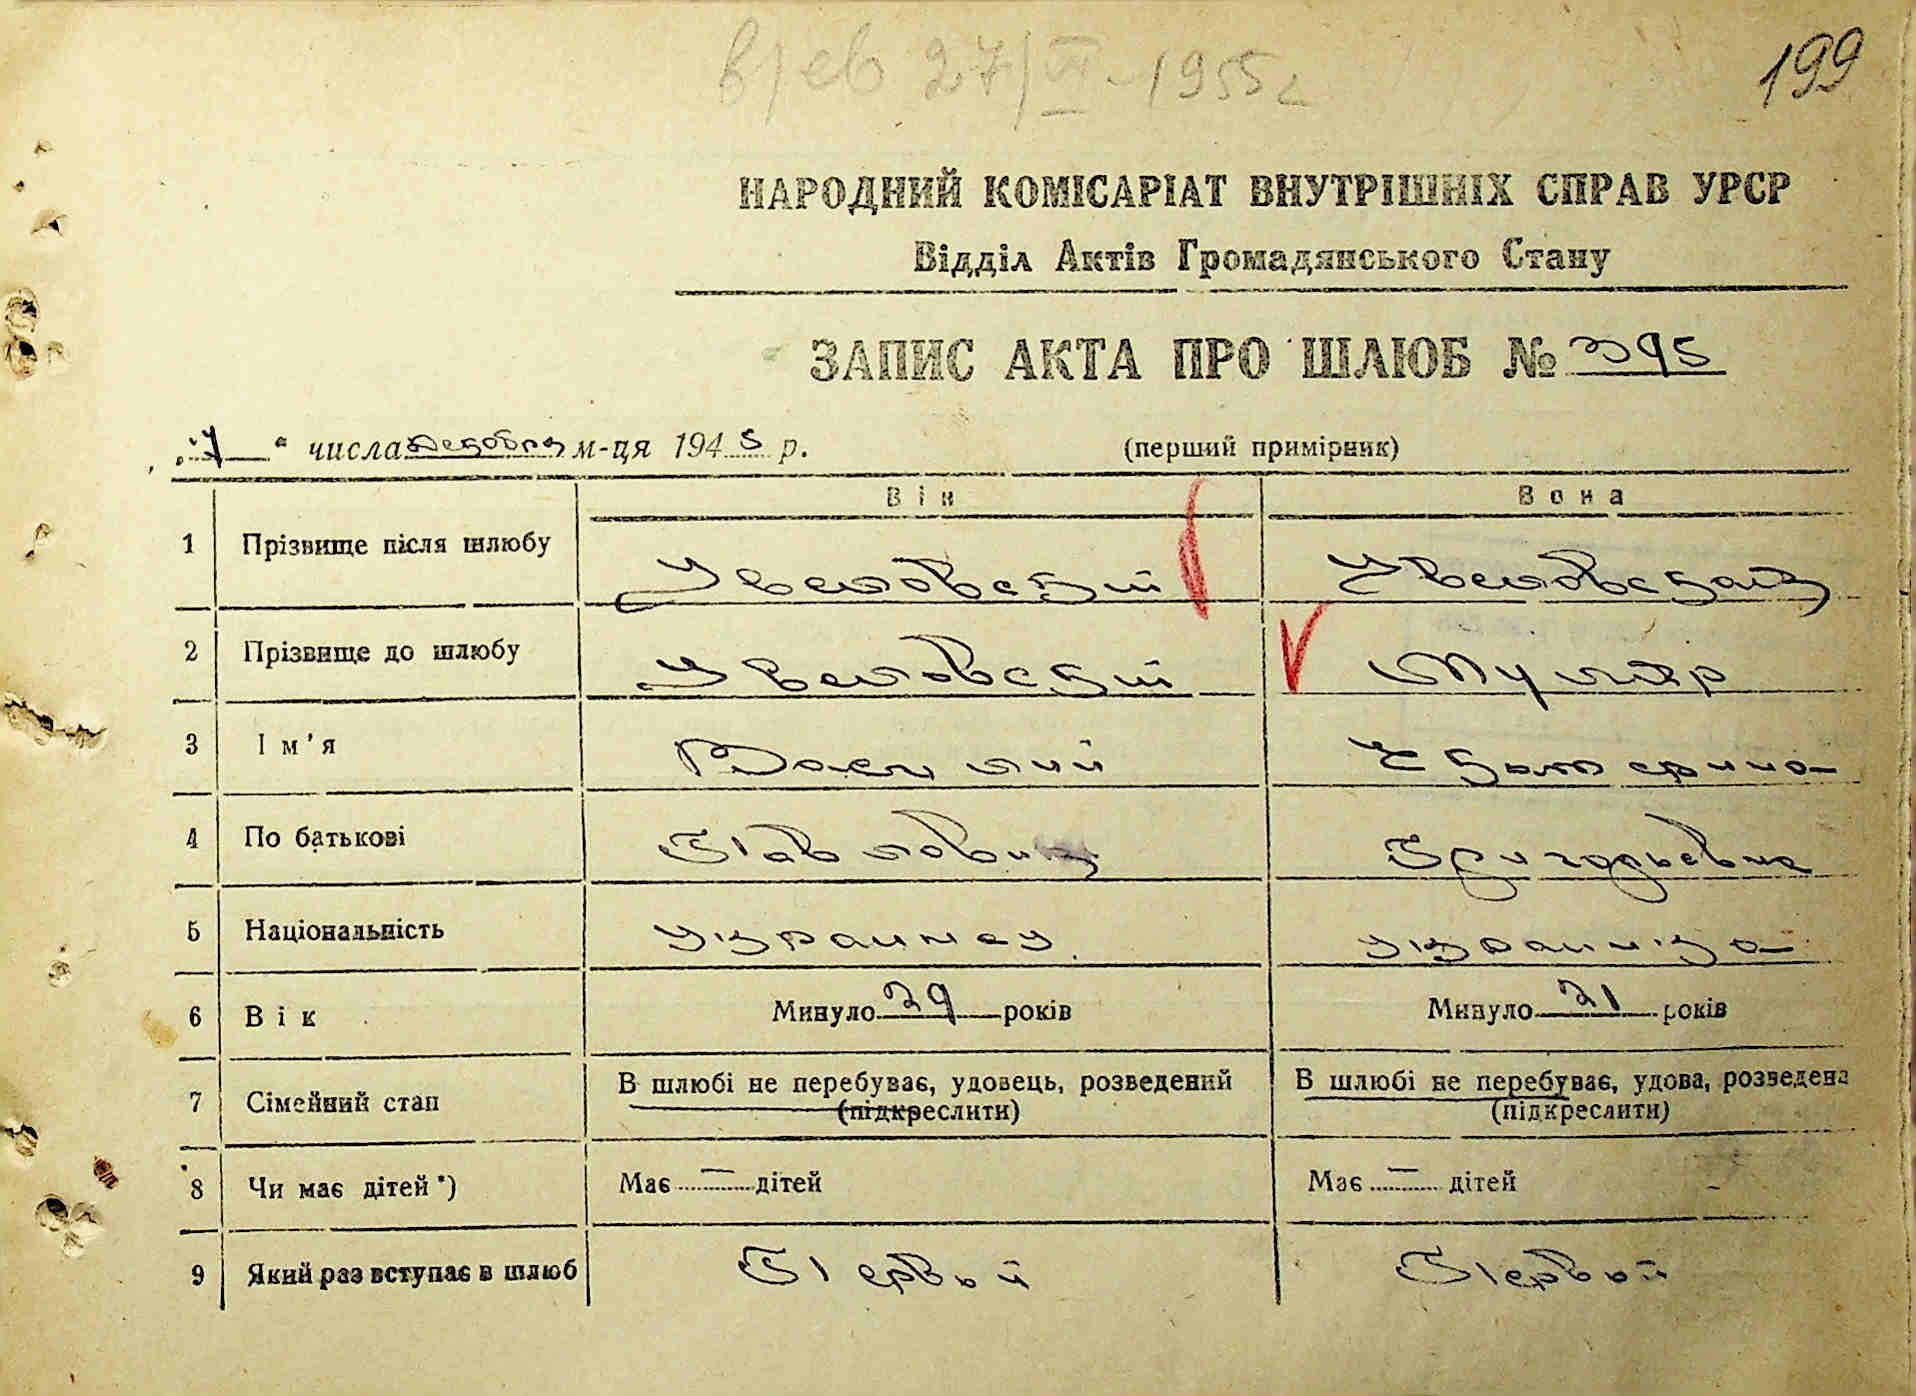 27/VI - 1955г
199
НАРОДНИЙ КОМІСАРІАТ ВНУТРІШНІХ СПРАВ УРСР
Відділ Актів Громадянського Стану
ЗАПИС АКТА ПРО ШЛЮБ № 395
„7“ числа декабря м-ця 1945 р. (перший примірник)
Він Вона
1 Прізвище після шлюбу
2 Прізвище до шлюбу Муляр
3 Ім'я Василий Екатерина
4 По батькові Павлович Григорьевна
5 Національність украинец украинка
6 Вік Минуло 39 років Минуло 31 років
7 Сімейний стан В шлюбі не перебуває, удовець, розведений В шлюбі не перебуває, удова, розведена
(підкреслити) (підкреслити)
8 Чи має дітей*) Має — дітей Має — дітей
9 Який раз вступає в шлюб Первый Первый